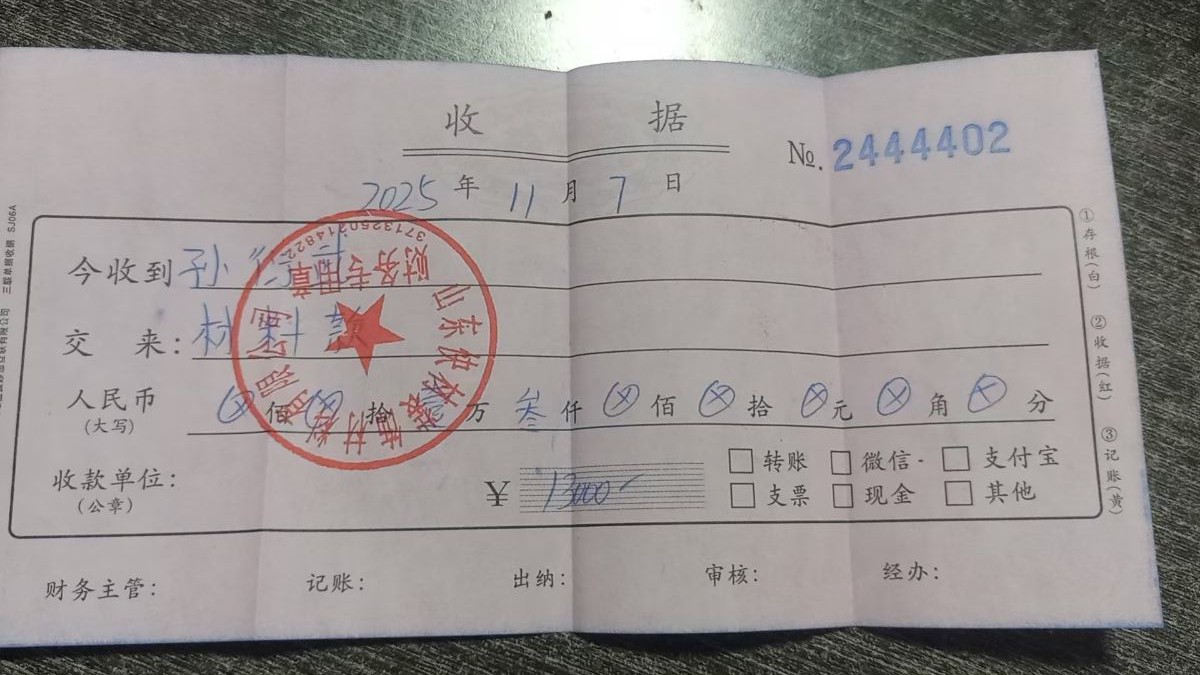 收 据
No. 2444402
2025 年 11 月 7 日
今收到 孙
交 来: 材料款
人民币 (大写) ⊗ 佰 ⊗ 拾 万 叁 仟 ⊗ 佰 ⊗ 拾 ⊗ 元 ⊗ 角 ⊗ 分
收款单位: (公章)
¥ 13000
转账 微信 支付宝
支票 现金 其他
财务主管: 记账: 出纳: 审核: 经办:
①存根(白) ②收据(红) ③记账(黄)
三联单据收据 SJ06A
财务专用章
3713250214822